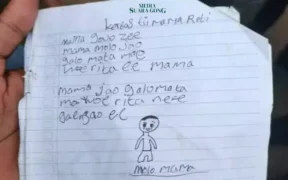 MEDIA
SUARA GONG
Kertas Tii Mama Reti
Mama Galo Zee
mama molo Ja'o
Galo mata Mae
Rita ee Mama
Mama Jao Galo Mata
Mae Rita nee
Gae ngao ee
Molo mama